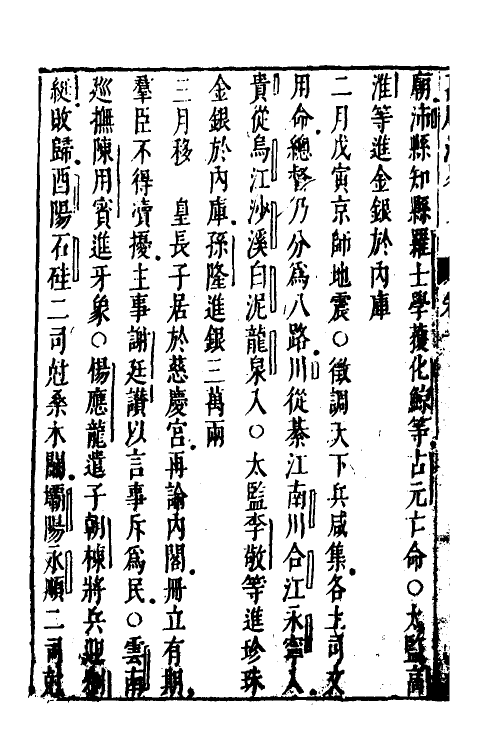 廟沛縣知縣羅士學獲化鯨等占元亡命○太監高
淮等進金銀於內庫
二月戊寅京師地震○徵調天下兵咸集各土司文
用命總督乃分為八路川從綦江南川合江永寧入
貴從烏江沙溪白泥龍泉入○太監李敬等進珍珠
金銀於內庫孫隆進銀三萬兩
三月移 皇長子居於慈慶宮再諭內閣冊立有期
羣臣不得瀆擾主事謝廷讚以言事斥為民○雲南
巡撫陳用賓進牙象○楊應龍遣子朝棟將兵迎
綎敗歸酉陽石砫二司尅桑木關壩陽永順二司尅